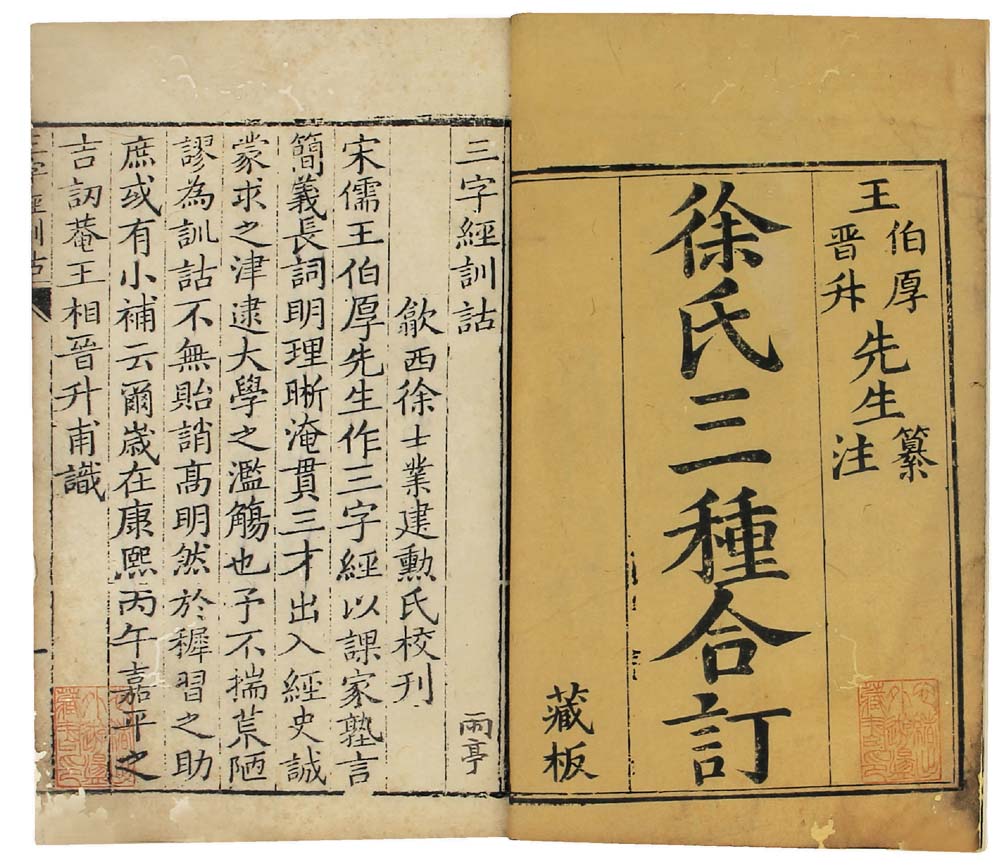 王伯厚先生纂
晋升注
徐氏三種合訂
藏板
三字經訓詁
歙西徐士業建勳氏校刊
雨亭
宋儒王伯厚先生作三字經以課家塾言
簡義長詞明理晰淹貫三才出入經史誠
蒙求之津逮大學之濫觴也予不揣荒陋
謬為訓詁不無貽誚高明然於穉習之助
庶或有小補云爾嵗在康熙丙午嘉平之
吉訒菴王相晉升甫識